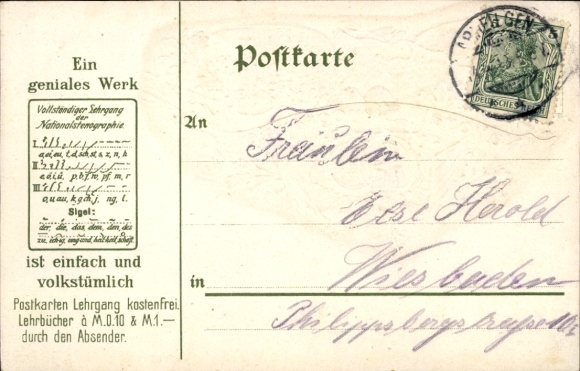 Ein
geniales Werk
Vollständiger Lehrgang
der
Nationalstenographie
I.
a, ei, au, t, d, sch, st, s, z, n, h
II.
e, ö, ü, p, b, f, w, pf, m, r
III.
o, u, au, k, g, ch, j, ng, l.
Sigel:
der, die, das, dem, den, des
zu, ung, und, heit, keit, schaft
ist einfach und
volkstümlich
Postkarten Lehrgang kostenfrei.
Lehrbücher à M.0.10 & M.1.—
durch den Absender.
Postkarte
DEUTSCHES
An
Fräulein
Else Herold
in Wiesbaden
Philippsbergstraße